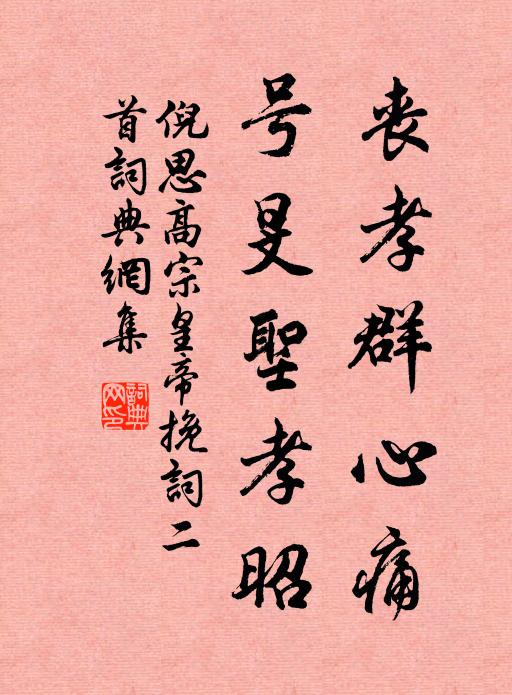 丧孝群心痛
号旻聖孝昭
倪思高宗皇帝挽詞二
首詞典網集
詞典
网印